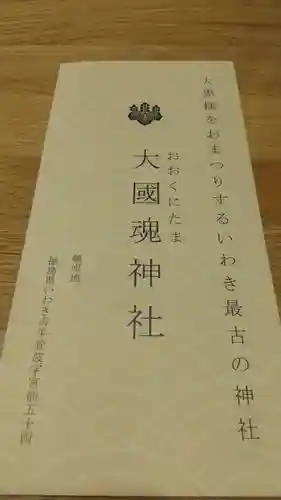 大黒様をおまつりするいわき最古の神社
おおくにたま
大國魂神社
鎮座地
福島県いわき市平菅波字宮前五十四